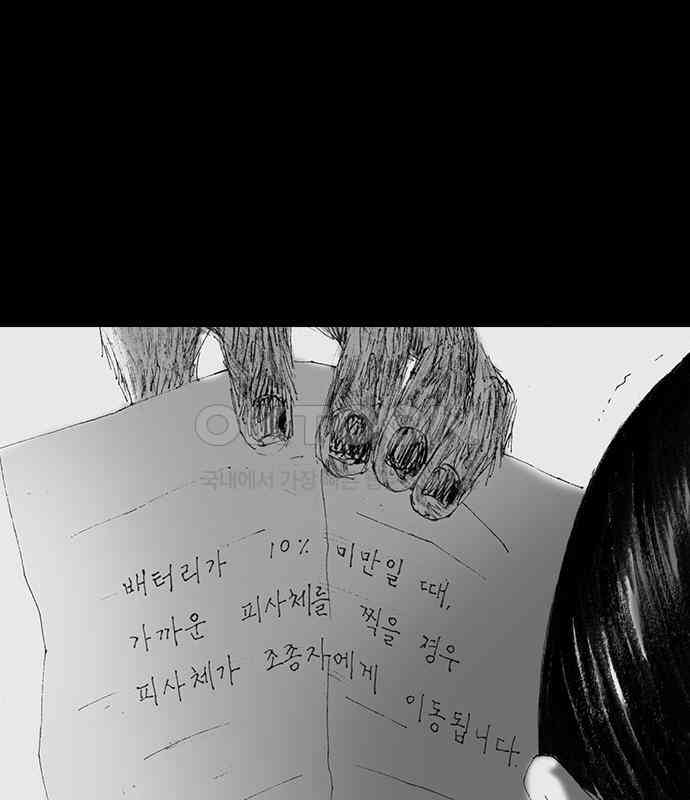 국내에서 가장
배터리가 10% 미만일 때,
가까운 피사체를 찍을 경우
피사체가 조종자에게 이동됩니다.